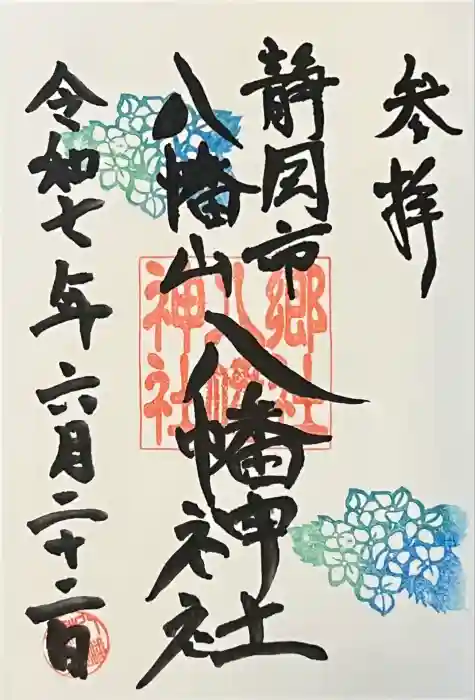 参拝
静岡市
八幡山
八幡神社
令和七年六月二十二日
郷社
八幡
神社